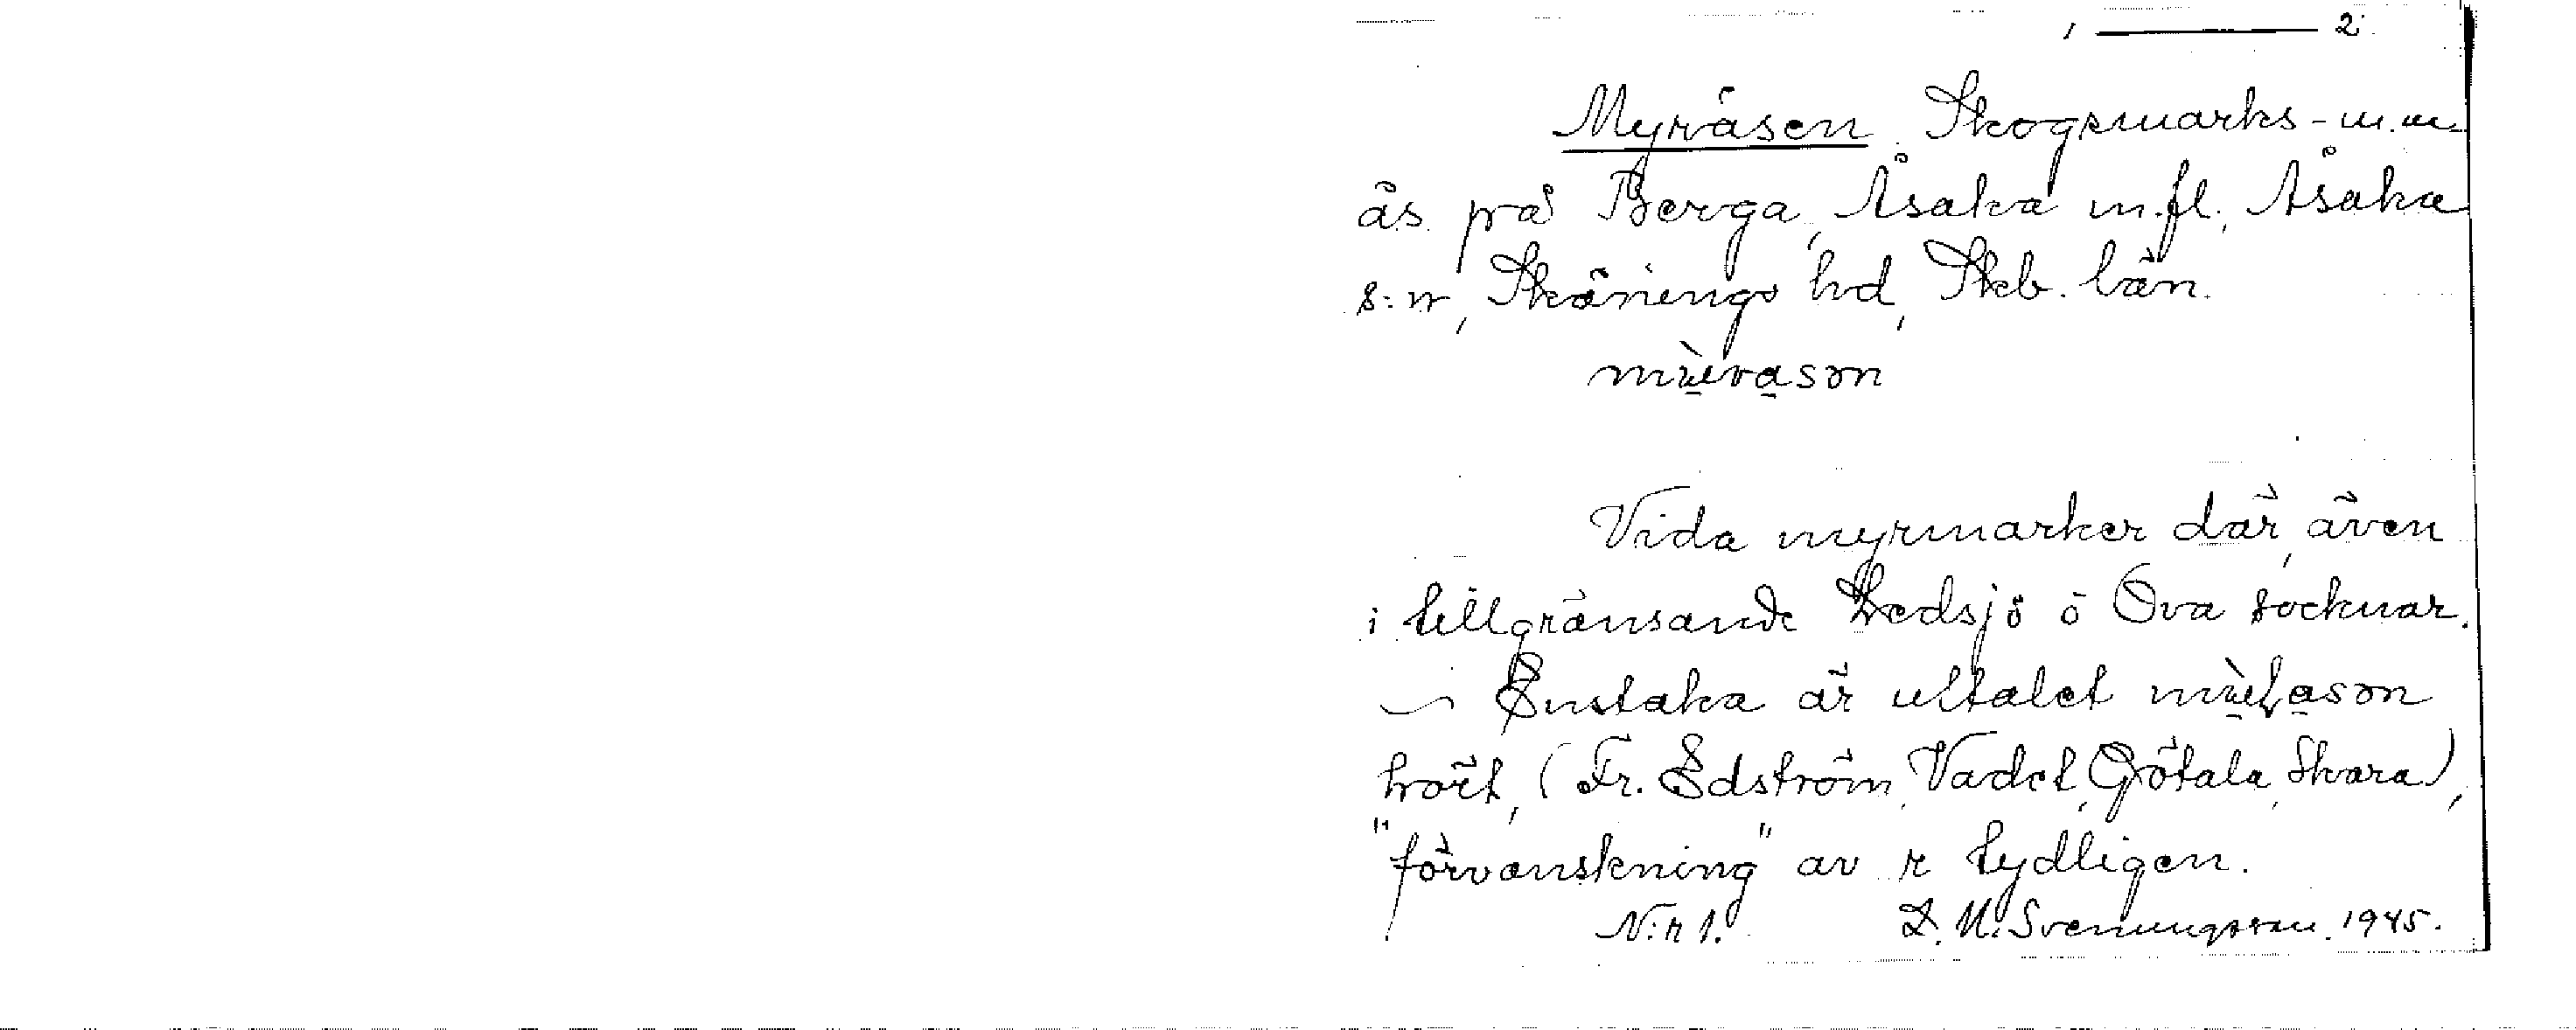 1 ——— 2
Myråsen. Skogsmarks- m.m.
ås på Berga, Åsaka m.fl., Åsaka
s:n, Skånings hd, Skb. län.
mỳrasən
Vida myrmarker där, även
i tillgränsande Ledsjö o Ova socknar.
— Enstaka är uttalet
hört, (Fr. Edström, Vadet, Götala, Skara),
"förvanskning" av r tydligen.
N:r 1. D. M. Svenungsson. 1945.